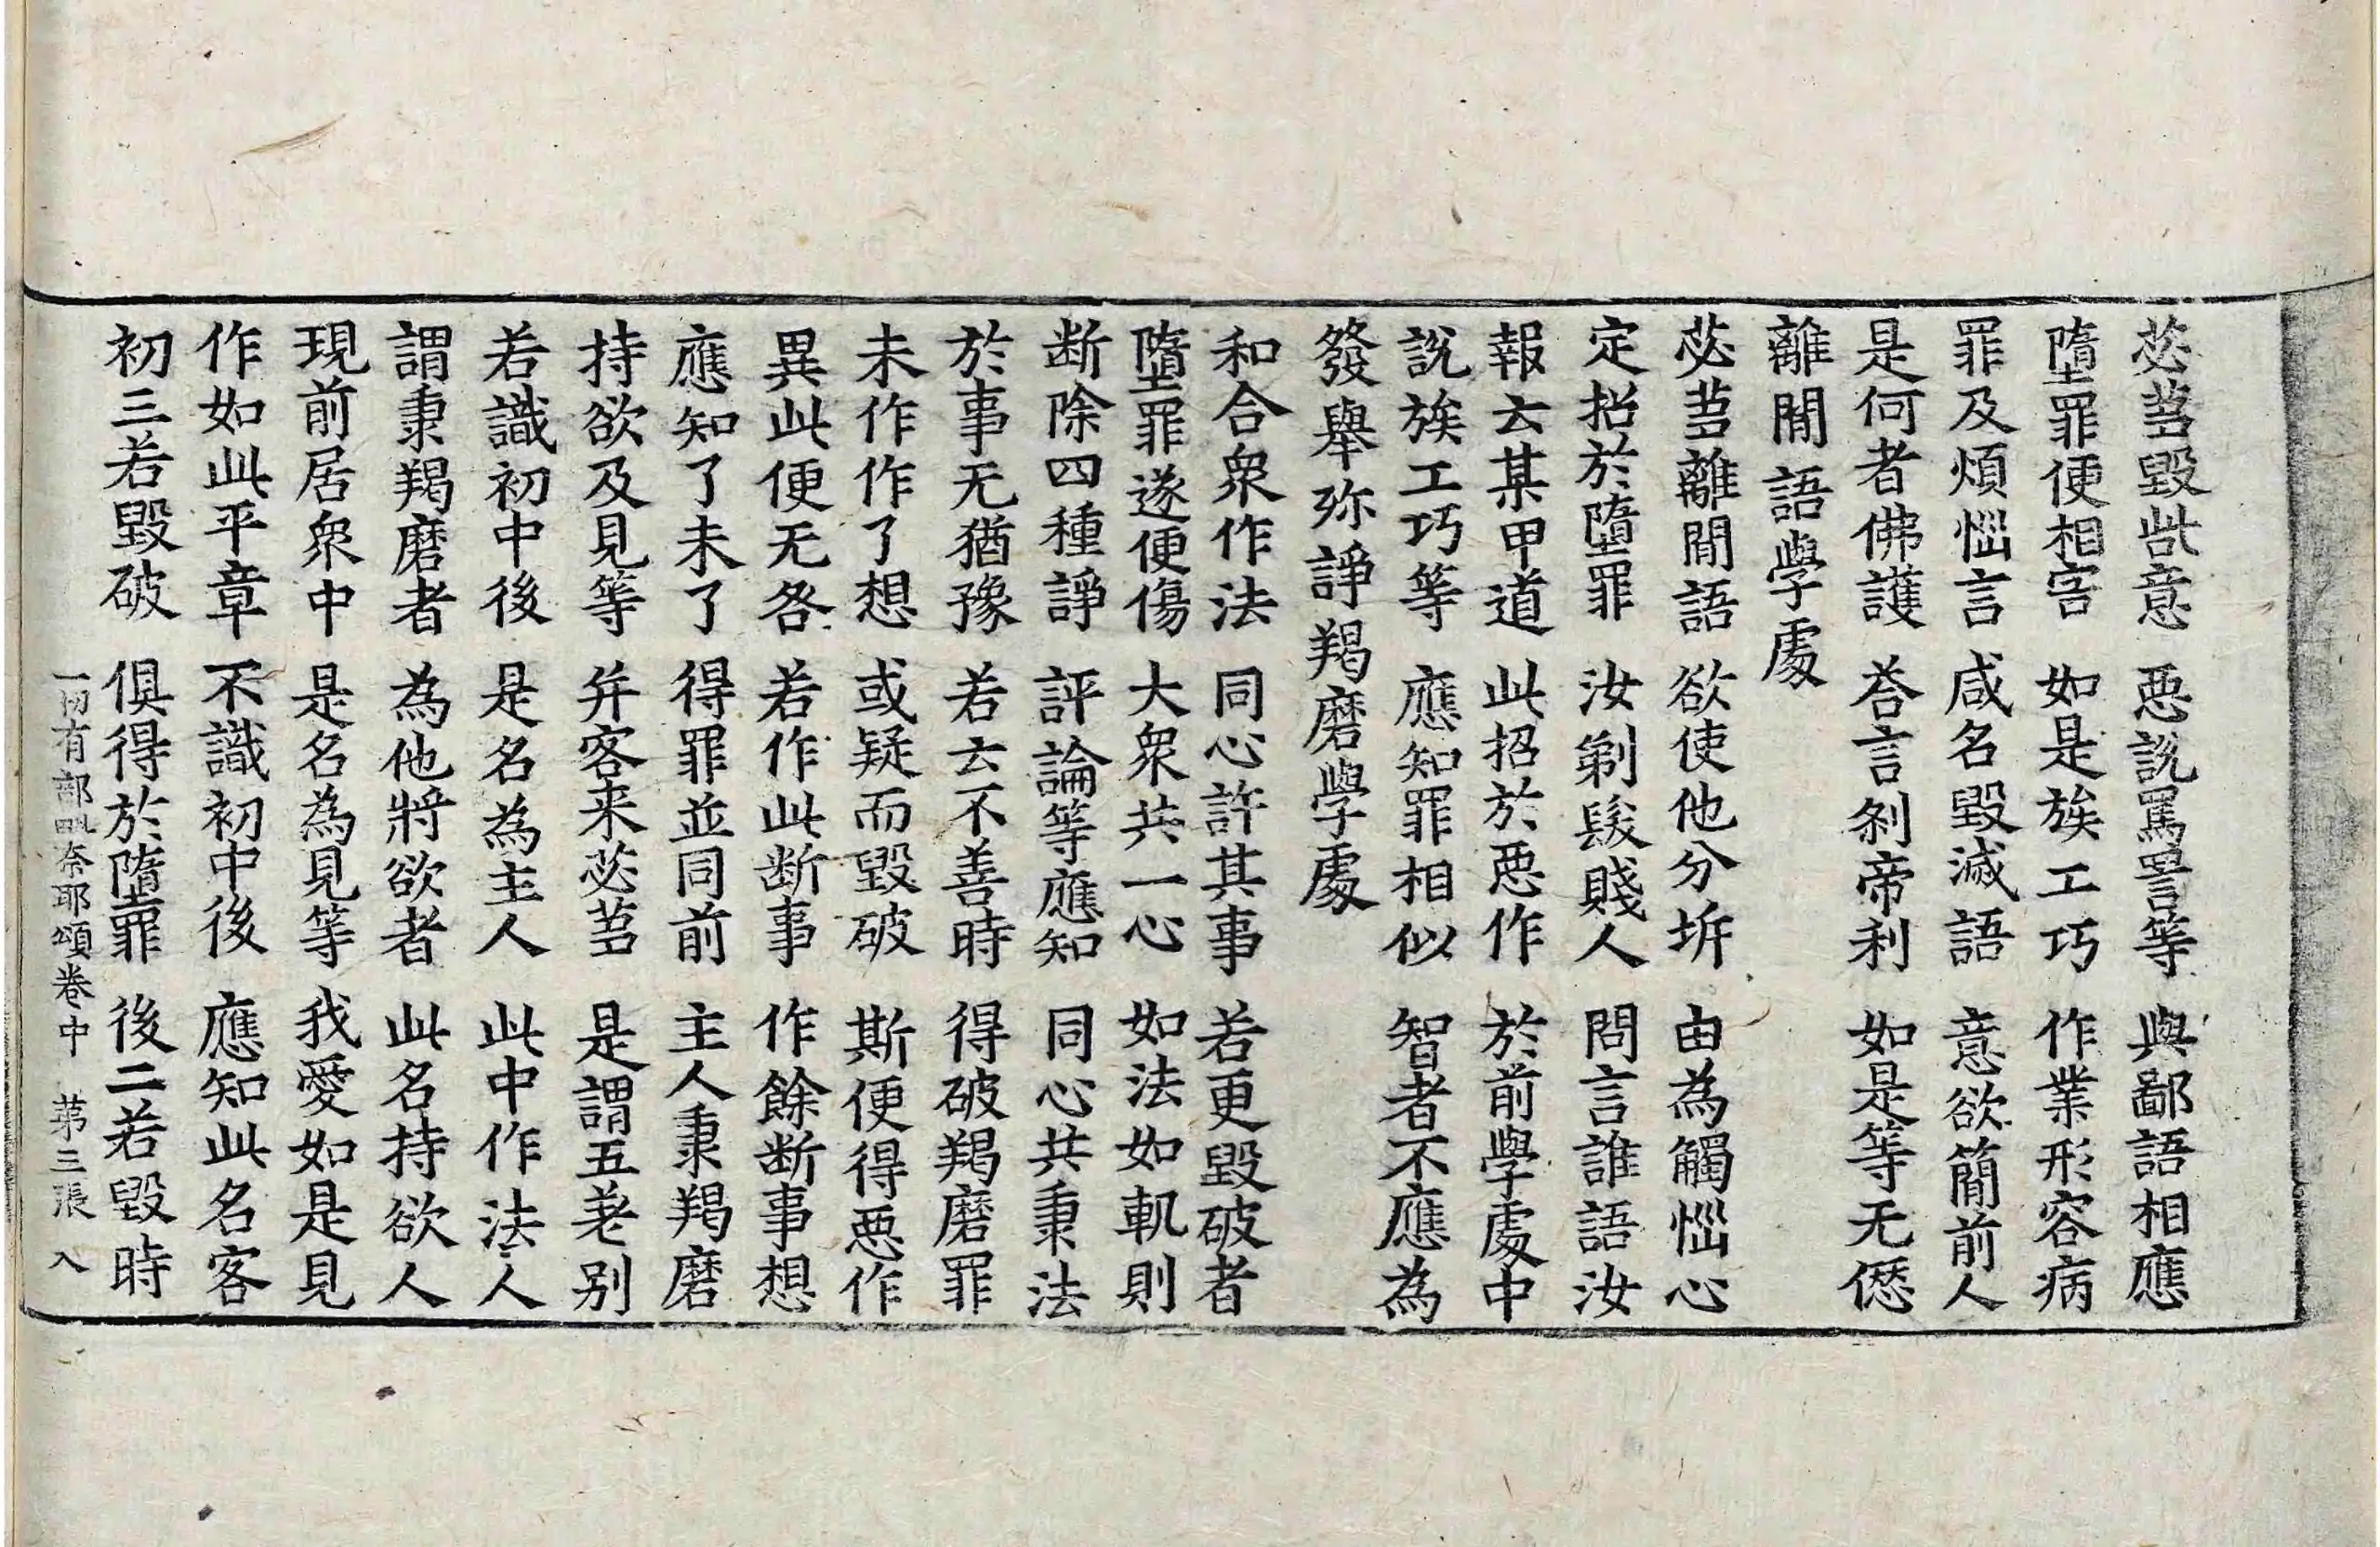 苾芻毀呰意　惡說罵詈等　與鄙語相應
墮罪便相害　如是族工巧　作業形容病
罪及煩惱言　咸名毀滅語　意欲簡前人
是何者佛護　荅言刹帝利　如是等无𠎝
離間語學處
苾芻離間語　欲使他分坼　由為觸惱心
定招於墮罪　汝剃髮賤人　問言誰語汝
報云某甲道　此招於惡作　於前學處中
說族工巧等　應知罪相似　智者不應為
發舉殄諍羯磨學處
和合衆作法　同心許其事　若更毀破者
墮罪遂便傷　大衆共一心　如法如軌則
断除四種諍　評論等應知　同心共秉法
於事无猶豫　若云不善時　得破羯磨罪
未作作了想　或疑而毀破　斯便得惡作
異此便无咎　若作此断事　作餘断事想
應知了未了　得罪並同前　主人秉羯磨
持欲及見等　并客来苾芻　是謂五差别
若識初中後　是名為主人　此中作法人
謂秉羯磨者　為他將欲者　此名持欲人
現前居衆中　是名為見等　我愛如是見
作如此平章　不識初中後　應知此名客
初三若毀破　俱得於墮罪　後二若毀時
一切有部毗奈耶頌卷中　苐三張　入